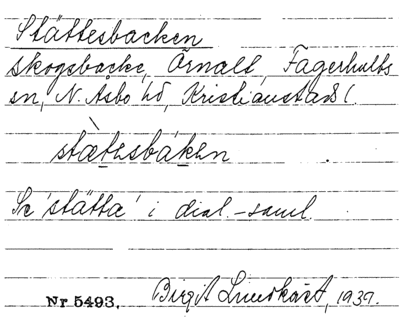 Stättesbacken
skogsbacke, Örnalt, Fagerhults
sn, N. Åsbo hd, Kristianstads l.
stætesbáken
Se 'stätta' i dial.-saml.
Nr 5493. Birgit Lundkvist, 1939.